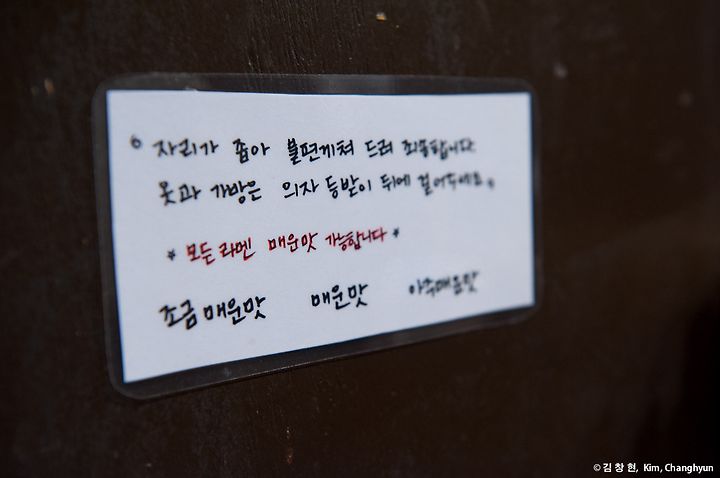 자리가 좁아 불편케쳐 드려 죄송합니다
옷과 가방은 의자 등받이 뒤에 걸어주세요.
* 모든 라멘 매운맛 가능합니다 *
조금 매운맛 매운맛 아주매운맛
© 김창현, Kim, Changhyun